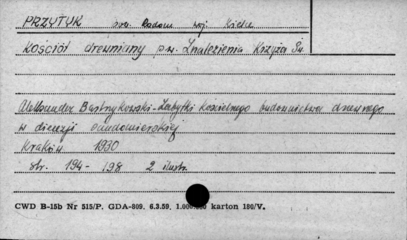 PRZYTYK pow. Radom woj. Kielce
Kościół drewniany p.w. Znalezienia Krzyża Św.
Aleksander Bastrzykowski - Zabytki kościelnego budownictwa drzewnego
w diecezji sandomierskiej
Kraków 1930
str. 194 - 198 2 ilustr.
CWD B-15b Nr 515/P. GDA-809. 6.3.59. karton 180/V.